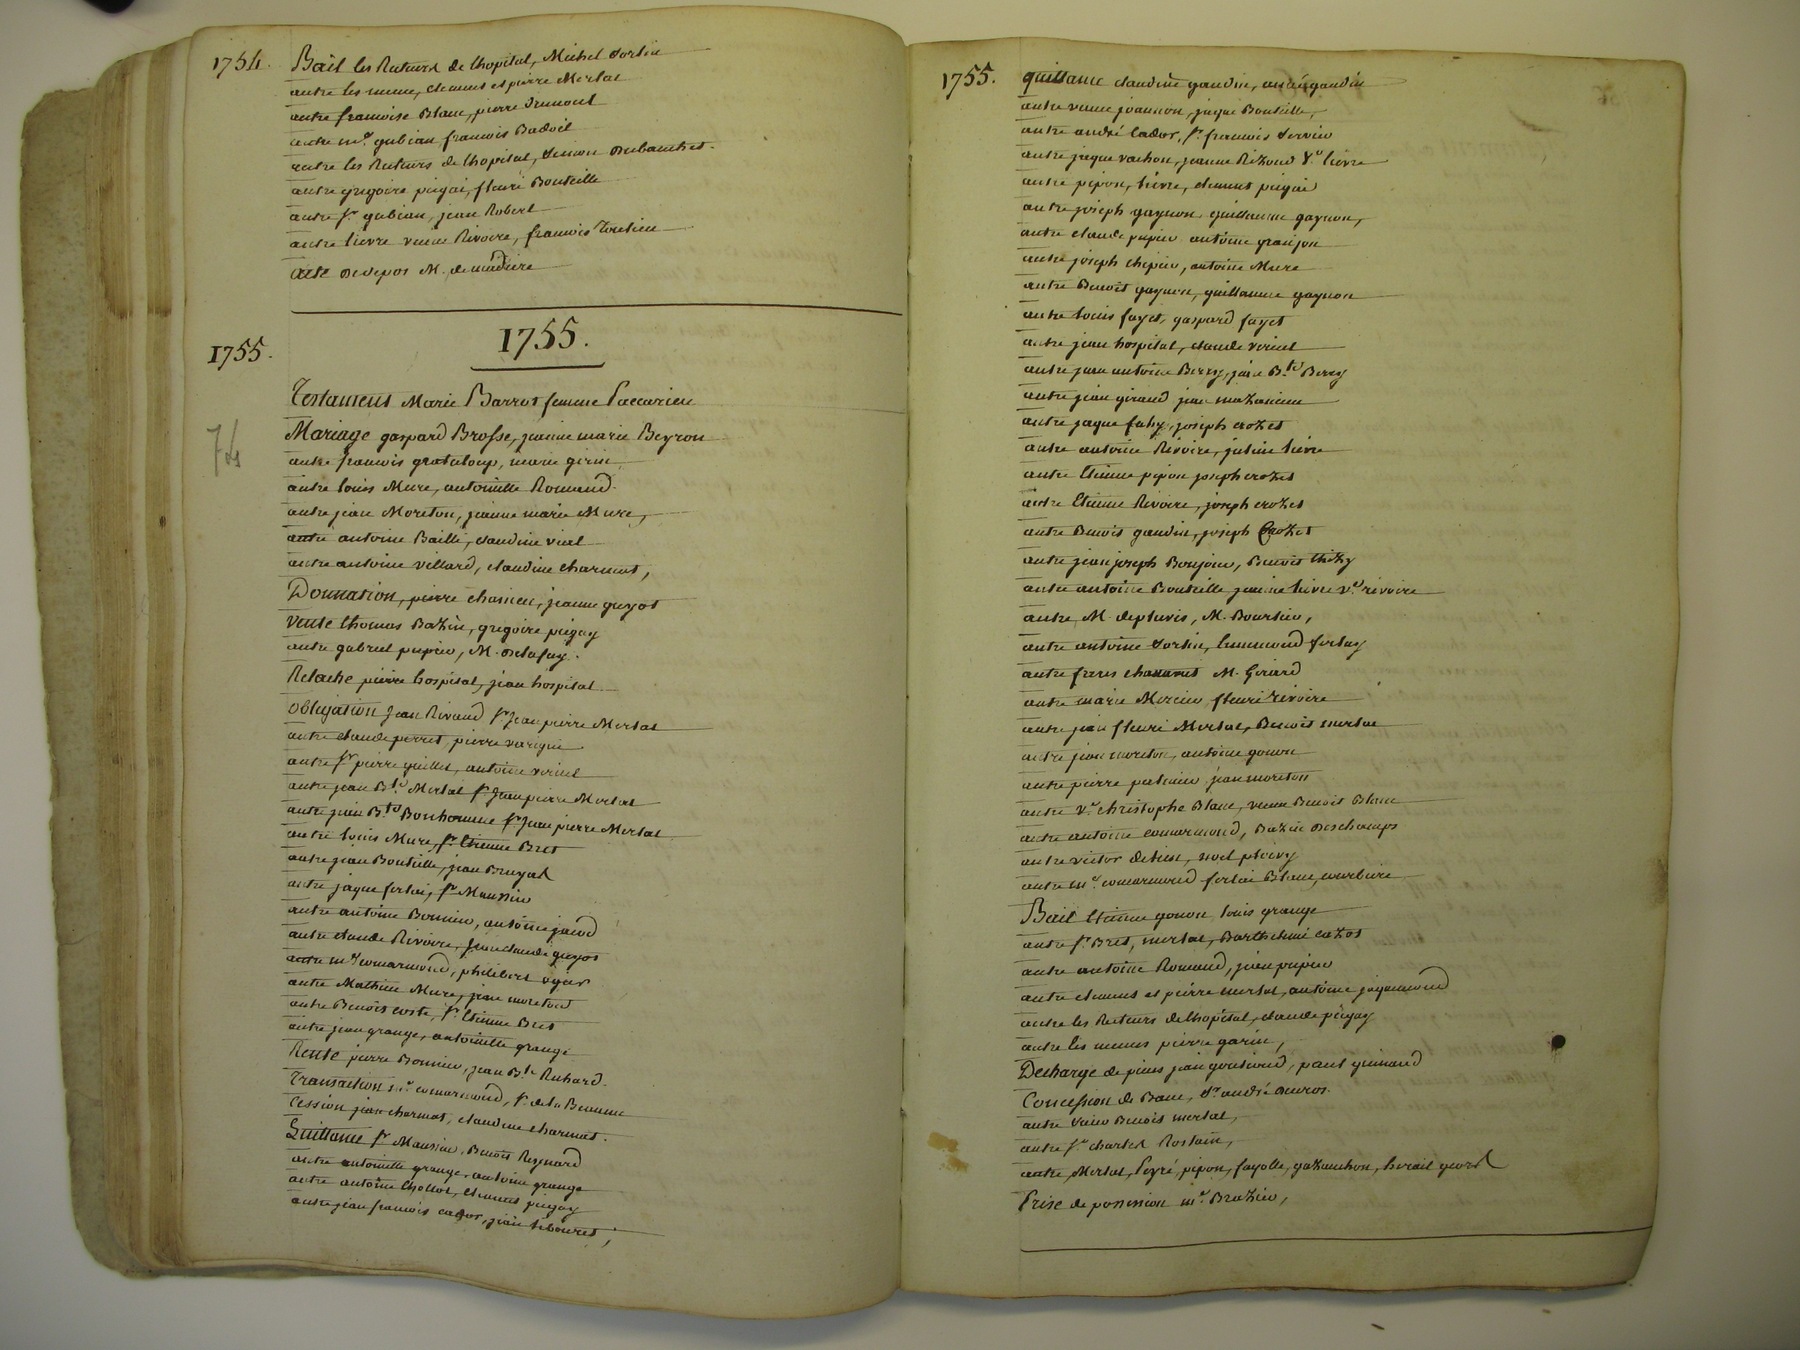 1754.
Bail les Recteurs de lhopital, Michel
autre les meme, clemens et pierre Merlat
autre francoise Blanc, pierre Dumont
autre me. gubian francois Badoil
autre les Recteurs de lhopital, Simon Dubanchet.
autre gregoire pugai, fleuri Bouteille
autre sr. gubian, jean Robert
autre lievre veuve Rivoire, francois
acte de depos M. de mudiere
1755.
1755.
74
Testament Marie Barrot femme Paccarieu
Mariage gaspard Brosse, jeanne marie Beyron
autre francois grataloup, marie girin
autre louis Mure, antoinette Romand.
autre jean Moreton, jeanne marie Mure,
autre antoine Bailli, claudine vial
autre antoine villard, claudine charmet,
Donnation, pierre chassieu, jeanne guyot
Vente thomas Bazin, gregoire pugay
autre gabriel pupier, M. Delafay.
Relache pierre hospital, jean hospital
Obligation Jean Rivaud sr. Jean pierre Merlat
autre claude perret pierre
autre sr. pierre guillet, antoine viricel
autre jean Bte. Merlat sr. Jean pierre Merlat
autre jean Bte. Bonhomme sr. Jean pierre Merlat
autre louis Mure, sr. Etienne Bret
autre jean Bouteille, jean Bruyas
autre jaque, sr. Maussier
autre antoine Bonnier, antoine
autre claude Rivoire, Jean claude guyot
autre me. comarmond, philibert ogier
autre Mathieu Mure, jean moreton
autre Benois coste, sr. Etienne Bret
autre jean grange, antoinette grange
Rente pierre Bonnier, jean Bte. Richard.
Transaction me. comarmond, sr. de la
Cession jean charmet, claudine charmet.
Quittance sr. Maussier, Benoit Reynard
autre antoinette grange, antoine grange
autre antoine Chollot, clemens pugay
autre jean francois cador, jean
1755.
quittance claudine gaudin, andré gaudin
autre veuve joannon, jaque Bouteille,
autre andré Cador, sr. francois
autre jaque vachon, jeanne Rizoud Ve. lievre
autre pipon, lievre, clemens pugai
autre joseph gaynon guillaume gaynon,
autre claude pupier antoine granjon
autre joseph chipier, antoine Mure
autre Benoit gaynon, guillaume gaynon
autre louis fayet, gaspard fayet
autre jean hospital, claude viricel
autre jean antoine Berry, jean Bte. Berry
autre jean giraud jean mazancieu
autre jaque fahy, joseph crozet
autre antoine Rivoire, justine lievre
autre Etienne pipon joseph crozet
autre Etienne Rivoire, joseph crozet
autre Benois gaudin, joseph Crozet
autre jean joseph Bonjour, Benoit thizy
autre antoine Bouteille jeanne lievre ve. rivoire
autre M. depluvis, M. Boursier,
autre antoine
autre freres chavanet M. Girard
autre marie Mercier fleuri rivoire
autre jean fleuri Merlat, Benoit merlat
autre jean moreton, antoine gonon
autre pierre jean moreton
autre ve. christophe Blanc, veuve Benoit Blanc
autre antoine comarmond, Bazin Deschamps
autre victor, noel
autre me. comarmond Blanc, courbiere
Bail Etienne gonon louis grange
autre sr. Bret, merlat, Barthelemi cazot
autre antoine Romand, jean pupier
autre clemens et pierre merlat, antoine
autre les Recteurs de lhopital, claude pugay
autre les memes pierre garin,
Decharge de pieces jean, paul guinand
Concession de Banc, Sr. andré
autre Benois merlat,
autre sr. charles Rostain,
autre, Merlat, pipon, fayolle,
Prise de possession me. Brazier,